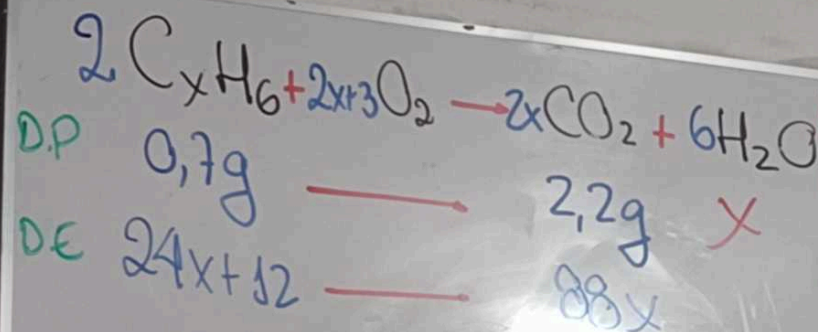 2CₓH₆+2x+3O₂→2xCO₂+6H₂O
D.P 0,7g → 2,2g X
DE 24x+12 → 88x